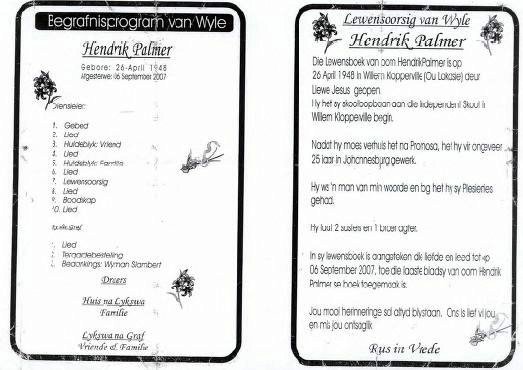 Begrafnisprogram van Wyle
Hendrik Palmer
Gebore: 26-April 1948
Afgesterwe: 06 September 2007
Diensleier:
1. Gebed
2. Lied
3. Huldeblyk: Vriend
4. Lied
5. Huldeblyk: Familie
6. Lied
7. Lewensoorsig
8. Lied
9. Boodskap
10. Lied
1. Lied
2. Teraardebestelling
3. Bedankings: Wyman Slambert
Draers
Huis na Lykswa
Familie
Lykswa na Graf
Vriende & Familie
Lewensoorsig van Wyle
Hendrik Palmer
Die Lewensboek van oom HendrikPalmer is op
26 April 1948 in Willem Klopperville (Ou Lokasie) deur
Liewe Jesus geopen.
Hy het sy skoolloopbaan aan die Independent Skool in
Willem Kloppeville begin.
Nadat hy moes verhuis het na Pronosa, het hy vir ongeveer
25 jaar in Johannesburg gewerk.
Hy was 'n man van min woorde en og het hy sy Plesieries
gehad.
Hy laat 2 susters en 1 broer agter.
In sy lewensboek is aangeteken dik liefde en leed tot op
06 September 2007, toe die laaste bladsy van oom Hendrik
Palmer se boek toegemaak is.
Jou mooi herinneringe sal altyd blystaan. Ons is lief vi jou
en mis jou ontsaglik
Rus in Vrede